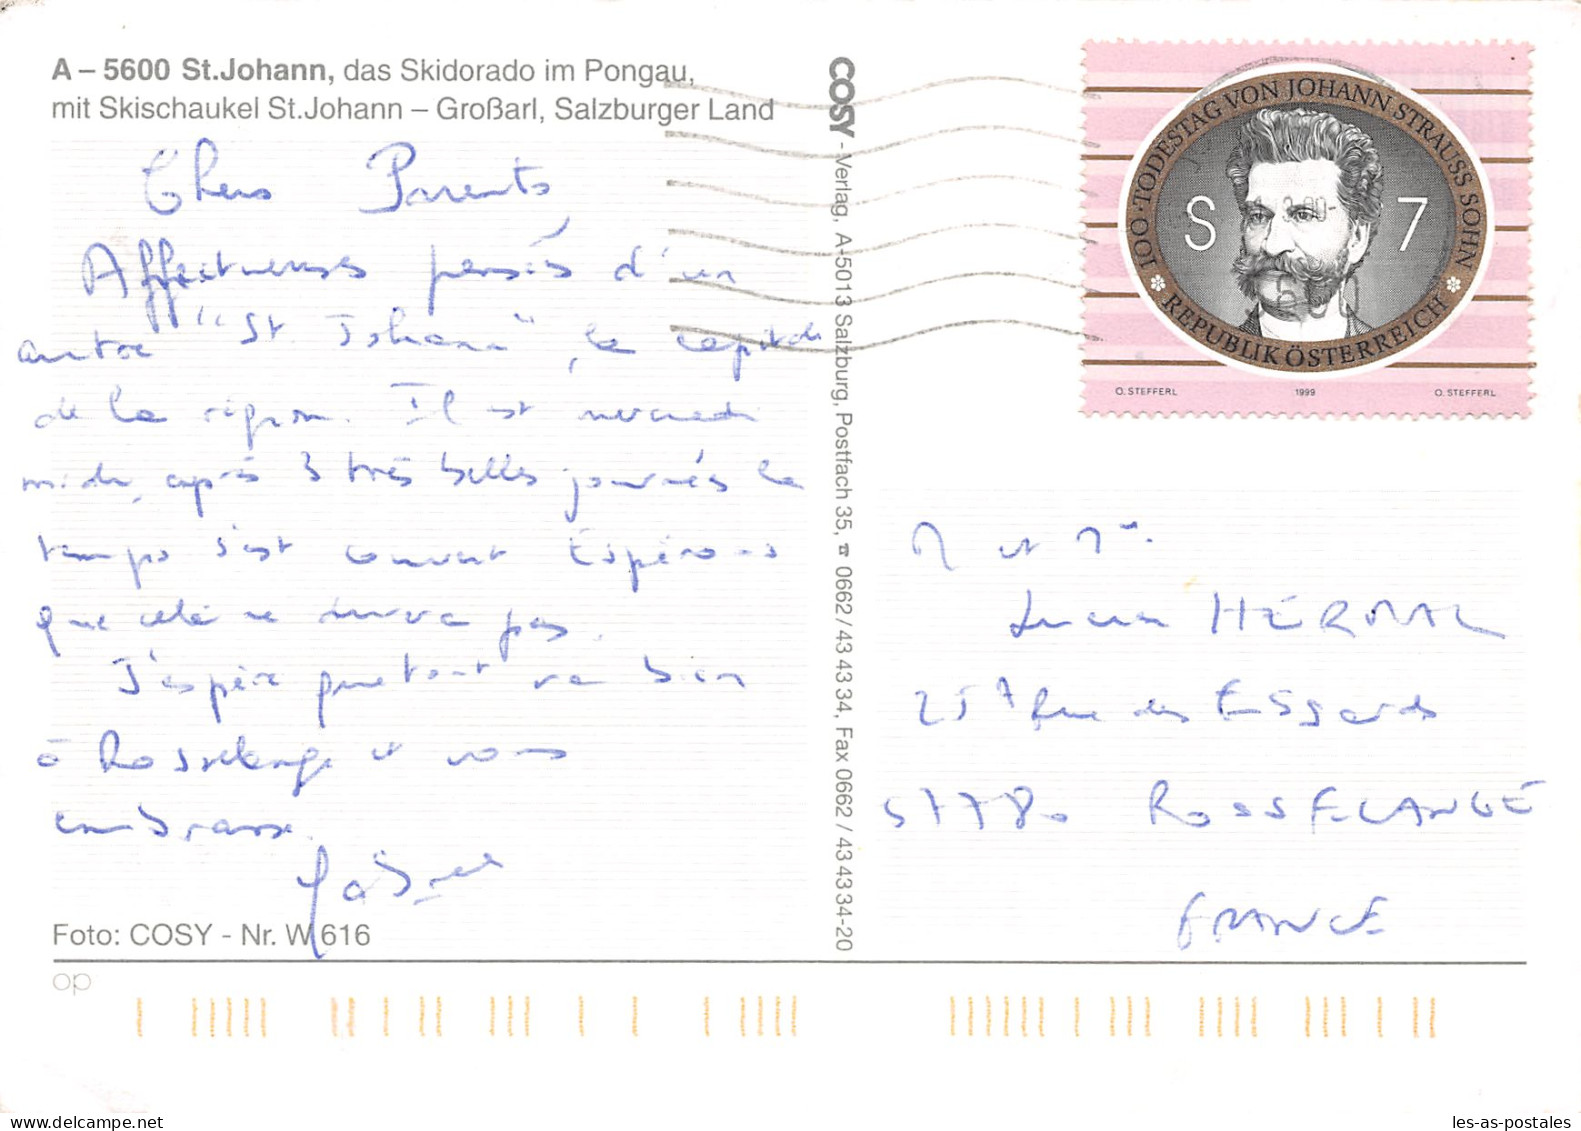 A – 5600 St.Johann, das Skidorado im Pongau,
mit Skischaukel St.Johann – Großarl, Salzburger Land
Chers Parents
Affectueuses pensées d'un
autre "St Johann", la capitale
de la région. Il est mercredi
midi, après 3 très belles journées le
temps s'est couvert Espérons
que cela ne durera pas.
J'espère que tout va bien
à Rosselange et vous
embrasse.
Foto: COSY - Nr. W 616
op
COSY - Verlag, A-5013 Salzburg, Postfach 35, ☎ 0662 / 43 43 34, Fax 0662 / 43 43 34-20
100. TODESTAG VON JOHANN STRAUSS SOHN
S 7
REPUBLIK ÖSTERREICH
O. STEFFERL 1999 O. STEFFERL
M et Mme
Lucien
25A Rue des Essards
57780 ROSSELANGE
FRANCE
les-as-postales